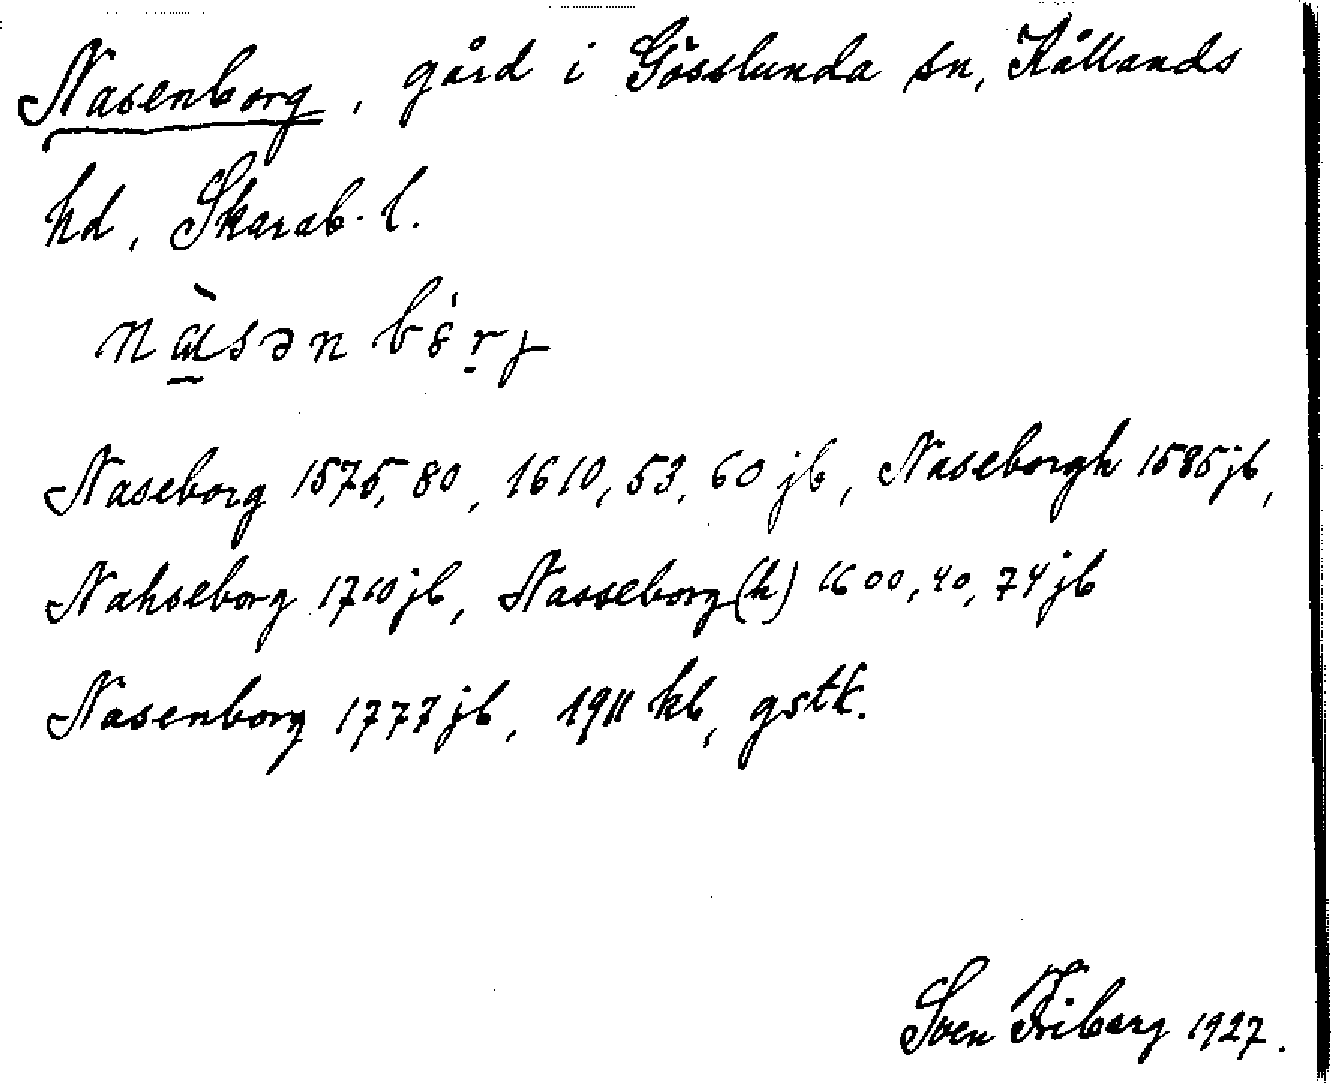 Nasenborg, gård i Gösslunda sn, Kållands
hd, Skarab. l.
Naseborg 1575, 80, 1610, 53, 60 jb, Naseborgh 1585 jb,
Nahseborg 1710 jb, Nasseborg(h) 1600, 40, 74 jb
Nasenborg 1777 jb, 1911 kb, gstk.
Sven Friberg 1927.